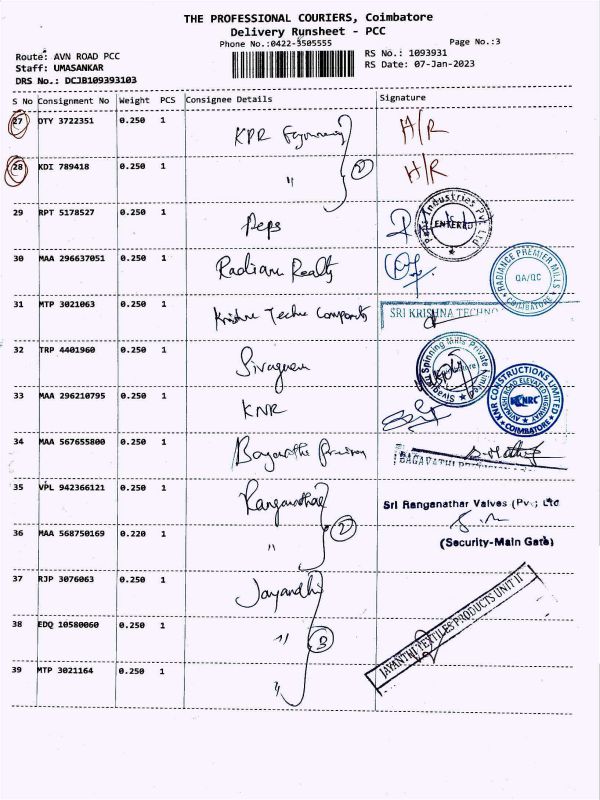 THE PROFESSIONAL COURIERS, Coimbatore
Delivery Runsheet - PCC
Phone No.:0422-3505555
Page No.:3
Route: AVN ROAD PCC
RS No.: 1093931
Staff: UMASANKAR
RS Date: 07-Jan-2023
DRS No.: DCJB109393103
S No Consignment No Weight PCS Consignee Details Signature
27 DTY 3722351 0.250 1 KPR H/R
28 KDI 789418 0.250 1 " 2 H/R
29 RPT 5178527 0.250 1 Peps
Industries Pvt. Ltd
ENTERED
30 MAA 296637051 0.250 1 Radiance Realty
RADIANCE PREMIER MILLS
QA/QC
COIMBATORE
31 MTP 3021063 0.250 1 Krishna Techno Components SRI KRISHNA TECHNO
32 TRP 4401960 0.250 1 Sivaguru
Spinning Mills Private Limited
33 MAA 296210795 0.250 1 KNR
KNR CONSTRUCTIONS LIMITED
AVINASHI ROAD ELEVATED HIGHWAY
KNRC
COIMBATORE
34 MAA 567655800 0.250 1 Bagavathi Precision BAGAVATHI
35 VPL 942366121 0.250 1 Ranganathar Sri Ranganathar Valves (Pvt) Ltd
36 MAA 568750169 0.220 1 " 2 (Security-Main Gate)
37 RJP 3076063 0.250 1 Jayandhi
JAYANTHI TEXTILES PRODUCTS UNIT II
38 EDQ 10580060 0.250 1 " 3
39 MTP 3021164 0.250 1 "